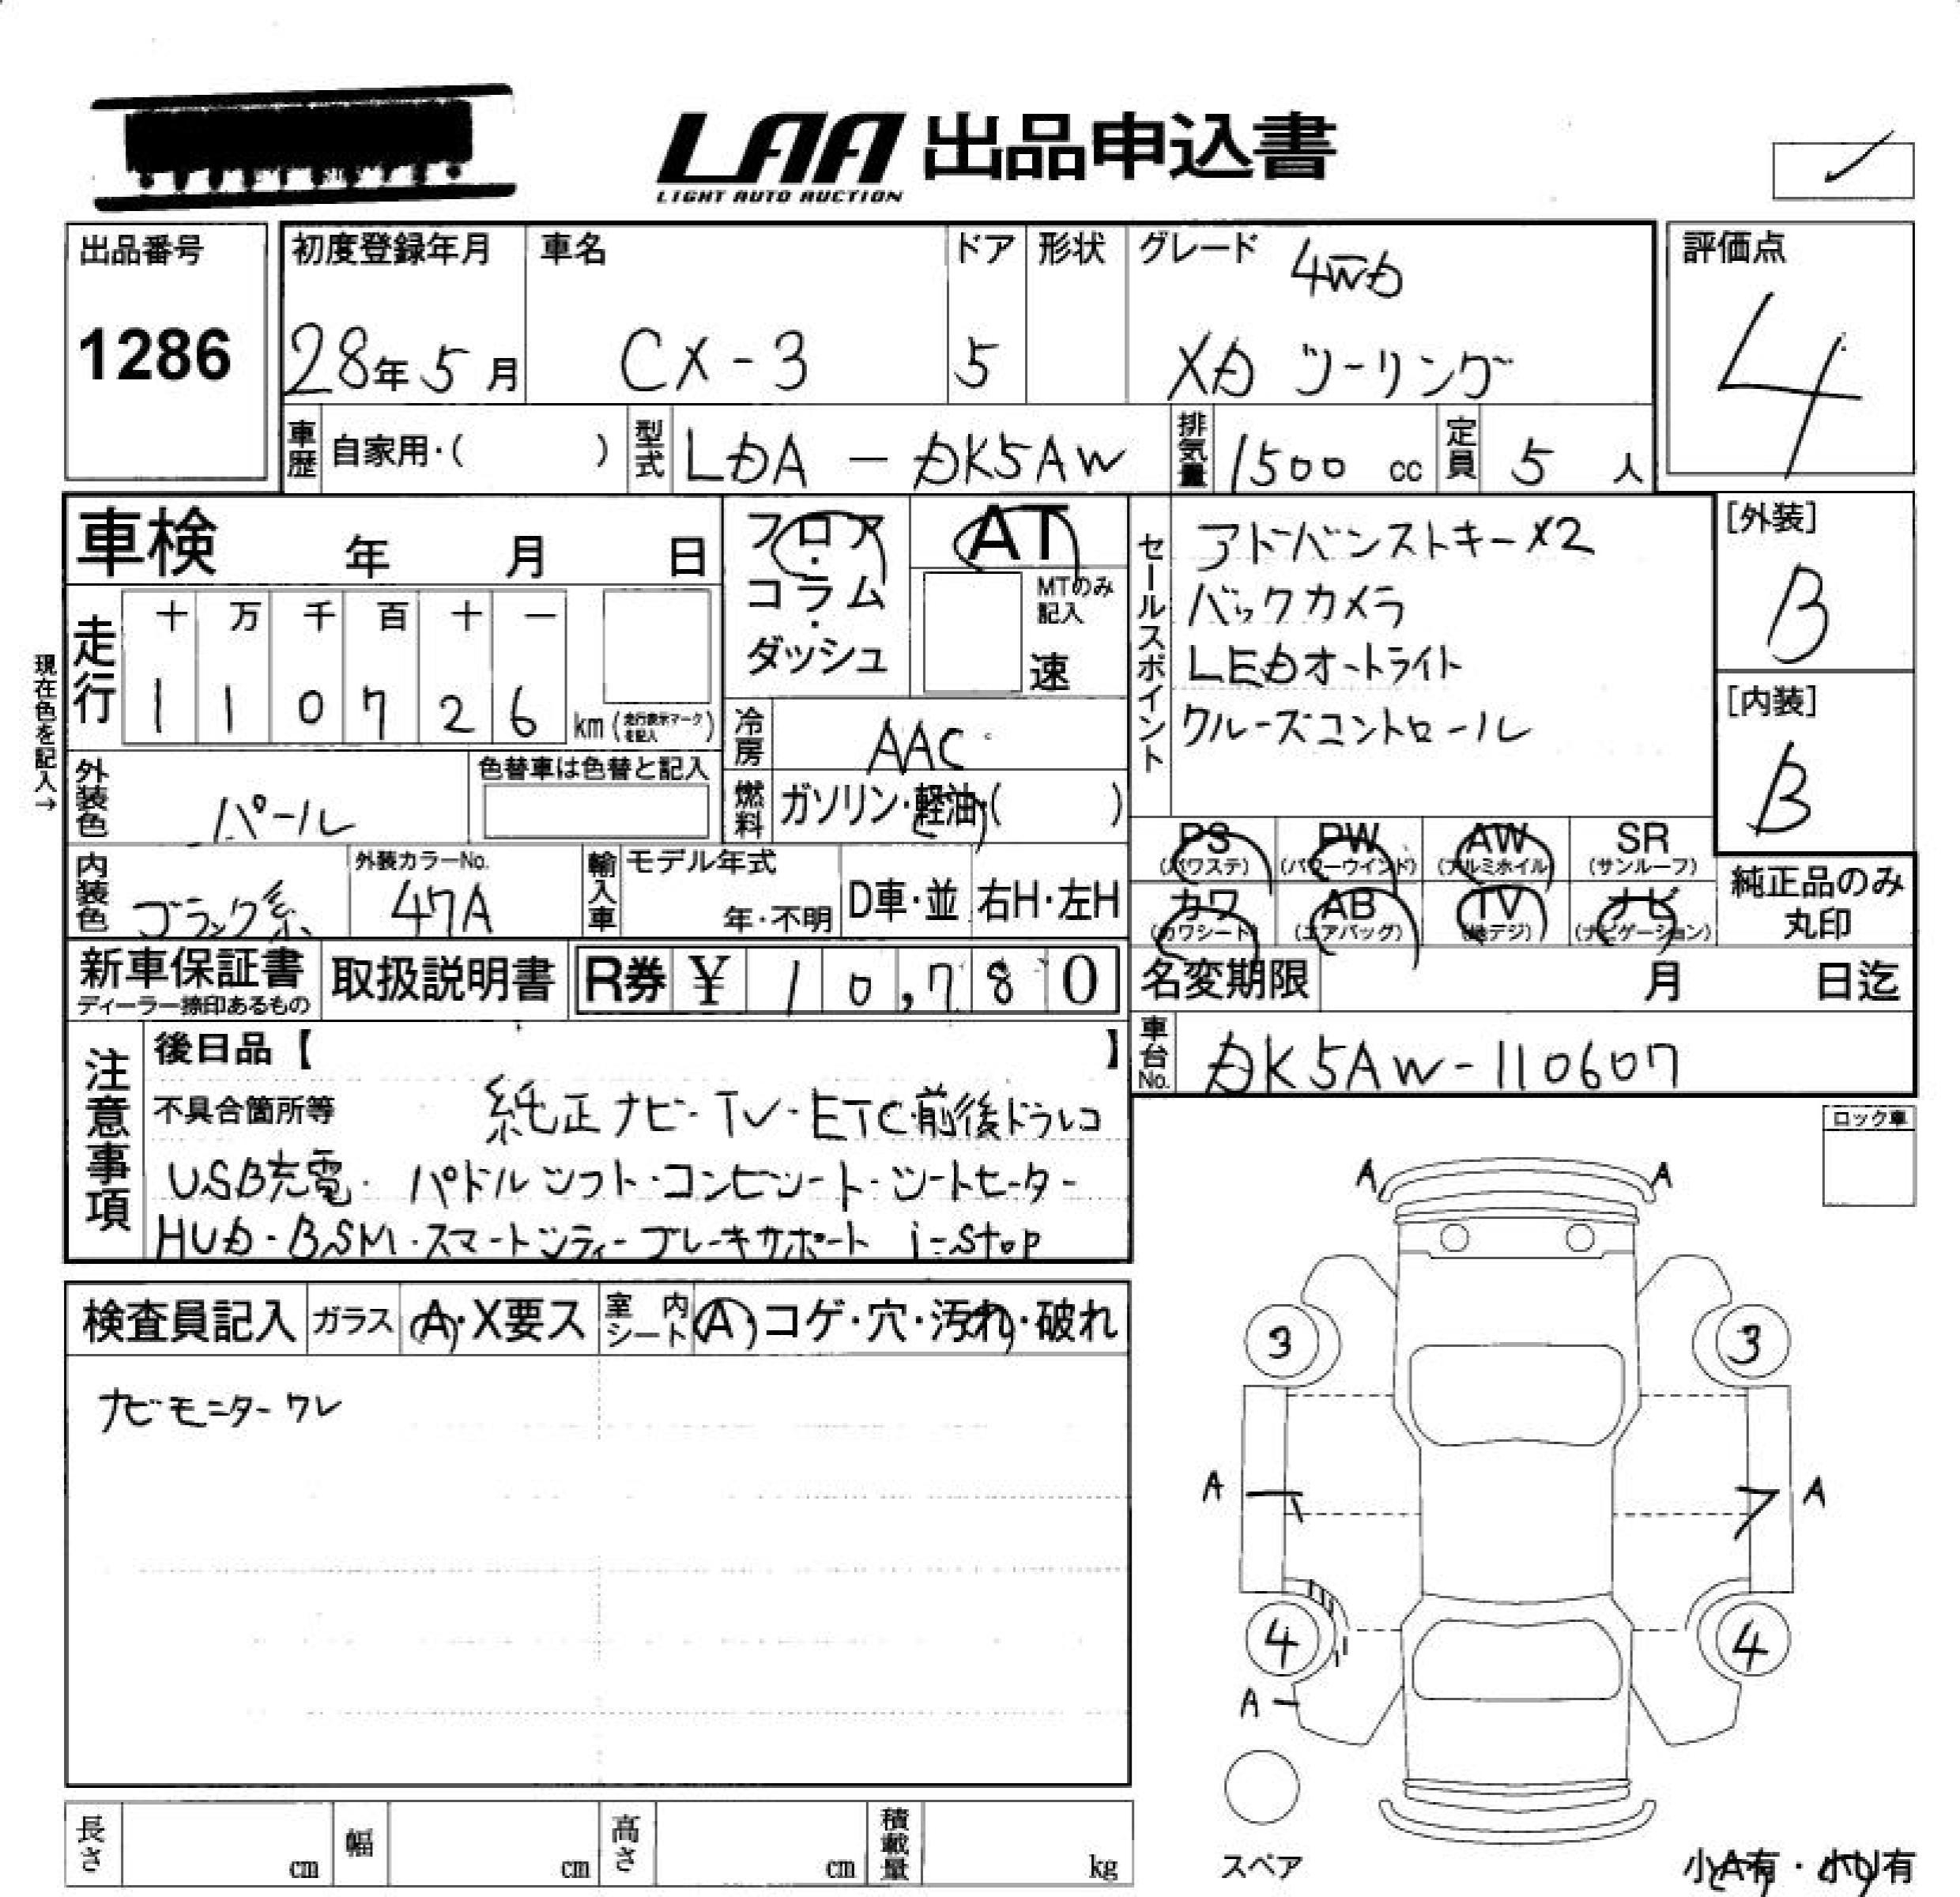 LAA 出品申込書
LIGHT AUTO AUCTION
出品番号
1286
初度登録年月
28年5月
車名
CX-3
ドア
5
形状
グレード
4WD
XD ツーリング
評価点
4
車歴
自家用・( )
型式
LDA - DK5AW
排気量
1500 cc
定員
5 人
車検 年 月 日
フロア・
コラム・
ダッシュ
AT
MTのみ
記入
速
セールスポイント
アドバンストキー×2
バックカメラ
LEDオートライト
クルーズコントロール
[外装]
B
[内装]
B
現在色を記入→
走行
十 万 千 百 十 一
1 1 0 7 2 6 km (走行表示マークを記入)
冷房
AAC
燃料
ガソリン・軽油・( )
外装色
パール
色替車は色替と記入
内装色
ブラック系
外装カラーNo.
47A
輸入車
モデル年式
年・不明
D車・並
右H・左H
PS
(パワステ)
PW
(パワーウインド)
AW
(アルミホイル)
SR
(サンルーフ)
カワ
(カワシート)
AB
(エアバッグ)
TV
(地デジ)
ナビ
(ナビゲーション)
純正品のみ
丸印
新車保証書
ディーラー捺印あるもの
取扱説明書
R券 ¥ 10,780
名変期限 月 日迄
車台No.
DK5AW-110607
注意事項
後日品【 】
不具合箇所等 純正ナビ・TV・ETC・前後ドラレコ
USB充電・パドルシフト・コンビシート・シートヒーター
HUD・BSM・スマートシティーブレーキサポート i-stop
ロック車
A A
3 3
A A
4 4
A
検査員記入
ガラス
A・X要ス
室内
シート
A・コゲ・穴・汚れ・破れ
ナビモニターワレ
長さ cm
幅 cm
高さ cm
積載量 kg
スペア
小A有・小U有